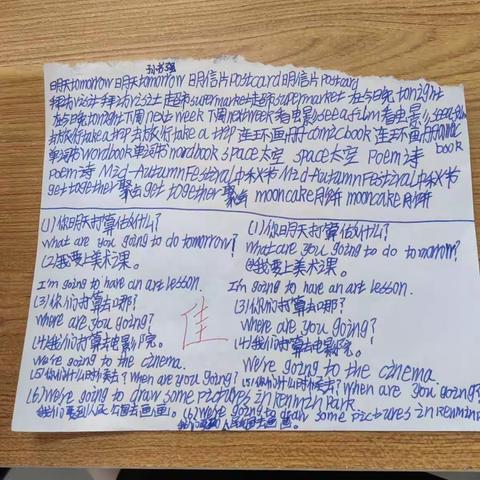 明天tomorrow 明天tomorrow 明信片postcard 明信片postcard
拜访visit 拜访visit 超市supermarket 超市supermarket 在今晚tonight
在今晚tonight 下周next week 下周next week 看电影see a film 看电影see a film
去旅行take a trip 去旅行take a trip 连环画册comic book 连环画册comic book
单词书wordbook 单词书wordbook space太空 space太空 poem诗
poem诗 Mid-Autumn Festival中秋节 Mid-Autumn Festival中秋节
get together聚会 get together聚会 mooncake月饼 mooncake月饼
(1)你明天打算做什么?
What are you going to do tomorrow?
(2)我要上美术课。
I'm going to have an art lesson.
(3)你们打算去哪?
Where are you going?
(4)我们打算去电影院。
We're going to the cinema.
(5)你们什么时候去? When are you going?
(6)We're going to draw some pictures in Renmin Park
我们要到人民公园去画画。
(1)你明天打算做什么?
What are you going to do tomorrow?
(2)我要上美术课。
I'm going to have an art lesson.
(3)你们打算去哪?
Where are you going?
(4)我们打算去电影院。
We're going to the cinema.
(5)你们什么时候去? When are you going?
(6)We're going to draw some pictures in Renmin
我们要到人民公园去画画。
佳